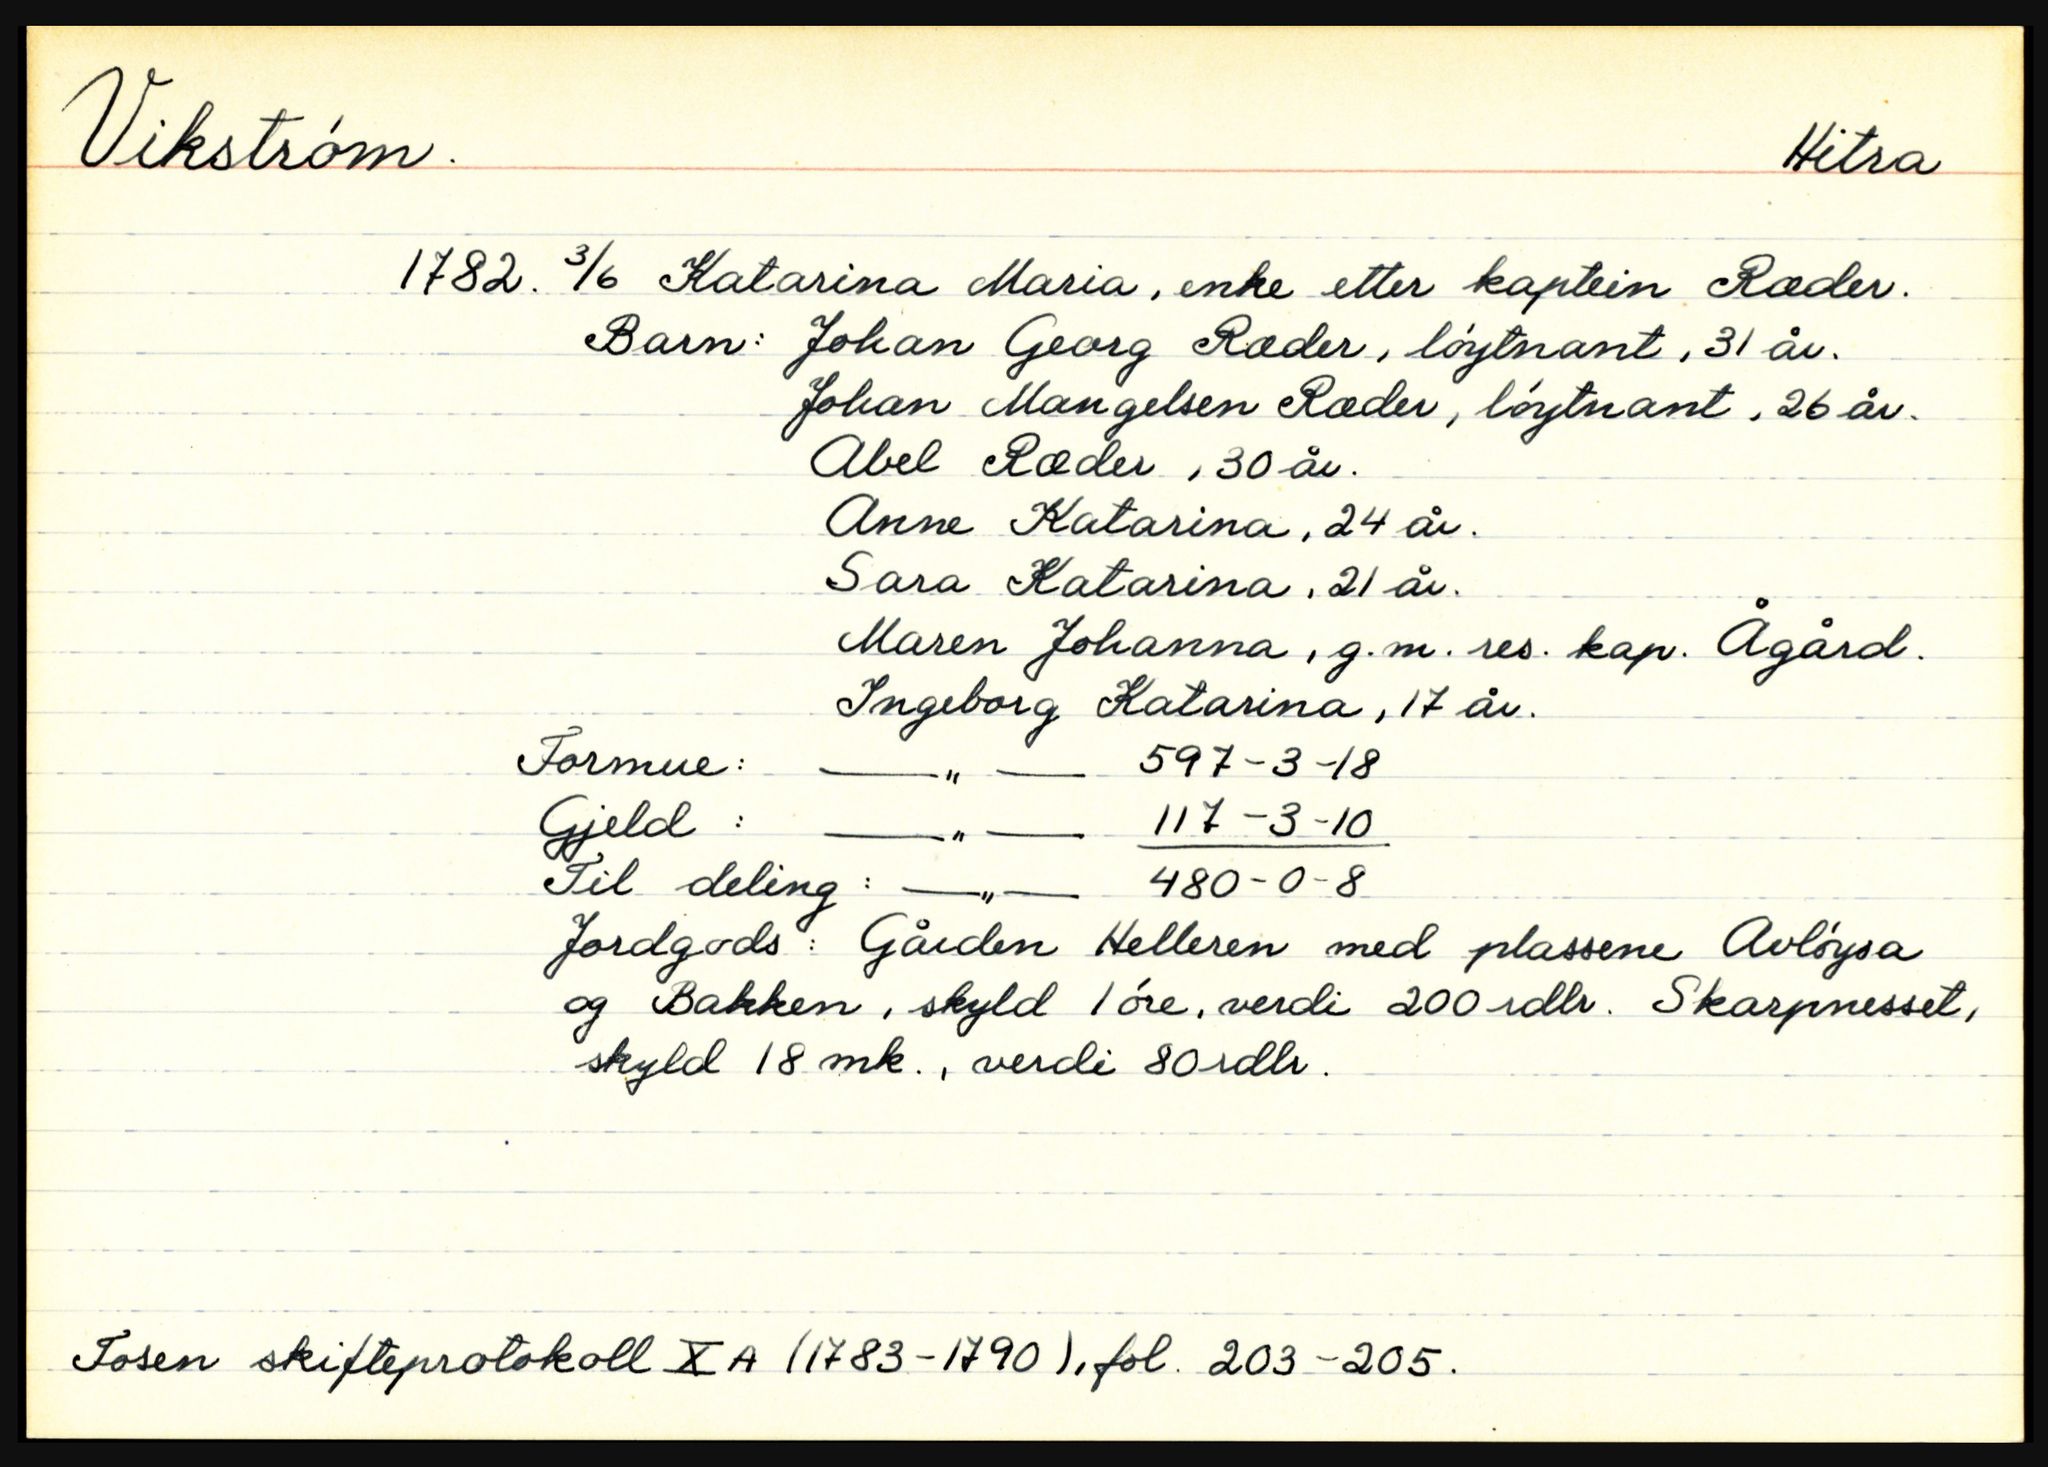 Vikstróm. Hitra
1782. 3/6 Katarina Maria, enke etter kaptein Ræder.
Barn: Johan Georg Ræder, lóytnant, 31 år.
Johan Mangelsen Ræder, lóytnant, 26 år.
Abel Ræder, 30 år.
Anne Katarina, 24 år.
Sara Katarina, 21 år.
Maren Johanna, g.m. res. kap. Ågård.
Ingeborg Katarina, 17 år.
Formue: —"— 597-3-18
Gjeld: —"— 117-3-10
Til deling: —"— 480-0-8
Jordgods: Gården Helleren med plassene Avlóysa
og Bakken, skyld 1 óre, verdi 200 rdlr. Skarpnesset,
skyld 18 mk., verdi 80 rdlr.
Fosen skifteprotokoll X A (1783-1790), fol. 203-205.